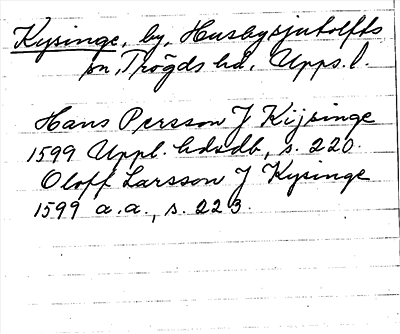 Kysinge, by, Husbysjutolfts
sn, Trögds hd. Upps. l.
Hans Persson J Kijsinge
1599 Uppl. hdsdb, s. 220.
Oloff Larsson J Kysinge
1599 a.a., s. 223.